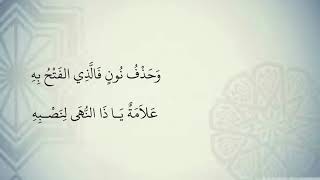 وَحَذْفُ نُونٍ فَالَّذِي الفَتْحُ بِهِ
عَلاَمَةٌ يَا ذَا النُّهَى لِنَصْبِهِ